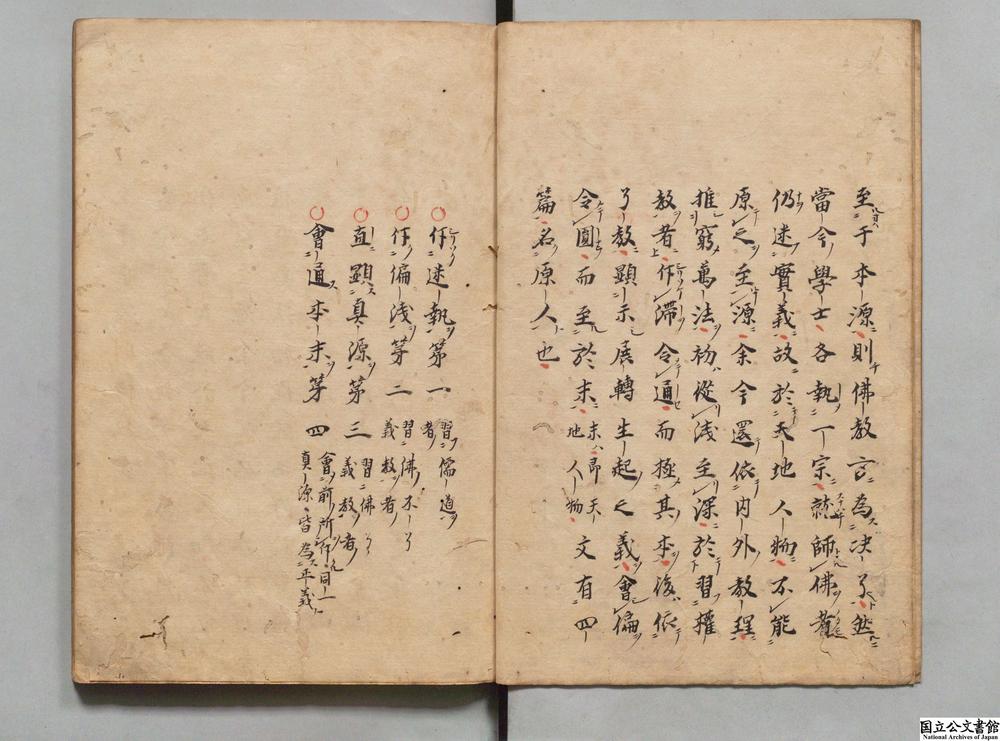 至于本源則佛教言為决了然
當今學士各執一宗就師佛者
仍迷實義故於天地人物不能
原之至源余今還依内外教理
推窮萬法初從浅至深於習權
教者斥滯令通而極其本後依
了教顯示展轉生起之義會偏
令圓而至於末末即天地人物文有四
篇名原人也
斥迷執第一習儒道者
斥偏浅第二習佛不了義教者
直顯真源第三習佛了義教者
會通本末第四會前所斥同一真源皆為正義
国立公文書館
National Archives of Japan